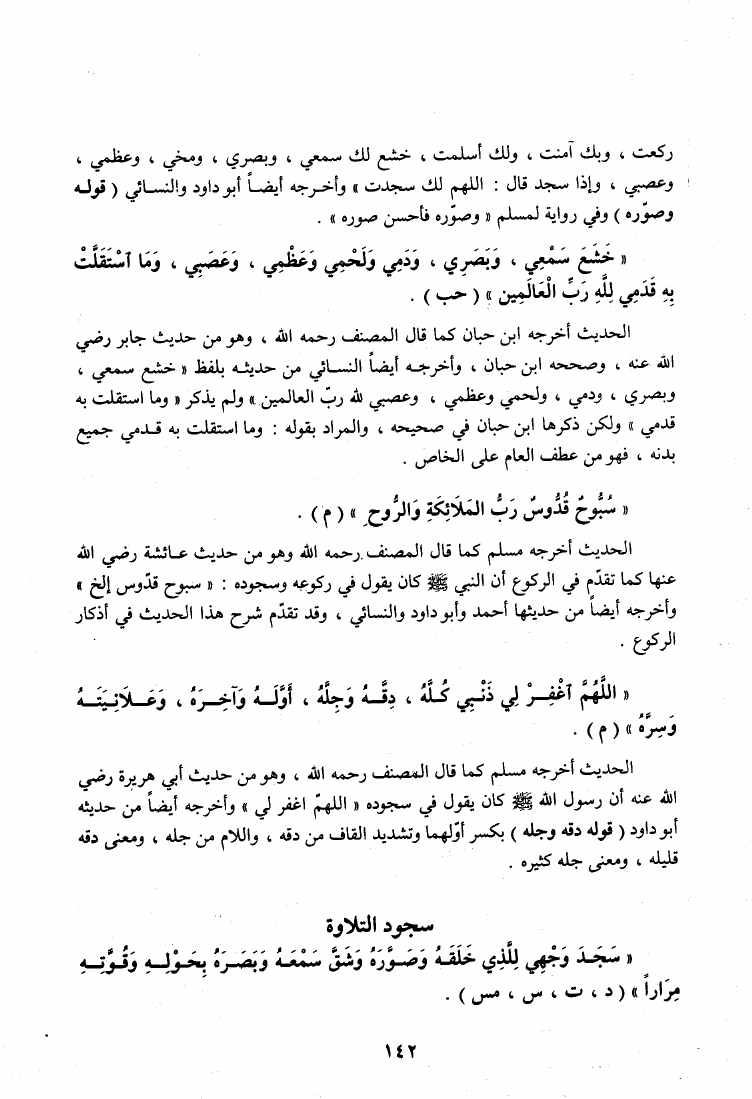 ركعت ، وبك آمنت ، ولك أسلمت ، خشع لك سمعي ، وبصري ، ومخي ، وعظمي ،
وعصبي ، وإذا سجد قال : اللهم لك سجدت » وأخـرجه أيضـاً أبو داود والنسـائي ( قولـه
وصوّره ) وفي رواية لمسلم « وصوّره فأحسن صوره » .
« خَشَعَ سَمْعِي ، وَبَصَرِي ، وَدَمِي وَلَحْمِي وَعَظْمِي ، وَعَصَبِي ، وَمَا ٱسْتَقَلَّتْ
بِهِ قَدَمِي لِلَّهِ رَبِّ الْعَالَمِين » ( حب ) .
الحديث أخرجه ابن حبان كما قال المصنف رحمه الله ، وهو من حديث جابر رضي
الله عنه ، وصححه ابن حبان ، وأخرجـه أيضاً النسـائي من حديثـه بلفظ « خشع سمعي ،
وبصري ، ودمي ، ولحمي وعظمي ، وعصبي لله ربّ العالمين » ولم يذكر « وما استقلت به
قدمي » ولكن ذكرها ابن حبان في صحيحه ، والمراد بقوله : وما استقلت به قـدمي جميع
بدنه ، فهو من عطف العام على الخاص .
« سُبُّوحٌ قُدُّوسٌ رَبُّ المَلَائِكَةِ وَالرُّوحِ » ( م ) .
الحديث أخرجه مسلم كما قال المصنف رحمه الله وهو من حديث عـائشة رضي الله
عنها كما تقدّم في الركوع أن النبي ﷺ كان يقول في ركوعه وسجوده : « سبوح قدّوس إلخ »
وأخرجه أيضاً من حديثها أحمد وأبو داود والنسائي ، وقد تقدّم شرح هذا الحديث في أذكار
الركوع .
« اللَّهُمَّ ٱغْفِـرْ لِي ذَنْبِي كُـلَّهُ ، دِقَّـهُ وَجِلَّهُ ، أَوَّلَـهُ وَآخِـرَهُ ، وَعَـلَانِيَتَـهُ
وَسِرَّهُ » ( م ) .
الحديث أخرجه مسلم كما قال المصنف رحمه الله ، وهو من حديث أبي هريرة رضي
الله عنه أن رسول الله ﷺ كان يقول في سجوده « اللهمّ اغفر لي » وأخرجه أيضاً من حديثه
أبو داود ( قوله دقه وجله ) بكسر أوّلهما وتشديد القاف من دقه ، واللام من جله ، ومعنى دقه
قليله ، ومعنى جله كثيره .
سجود التلاوة
« سَجَـدَ وَجْهِي لِلَّذِي خَلَقَـهُ وَصَـوَّرَهُ وَشَقَّ سَمْعَـهُ وَبَصَـرَهُ بِحَـوْلِـهِ وَقُـوَّتِـهِ
مِرَاراً » ( د ، ت ، س ، مس ) .
١٤٢